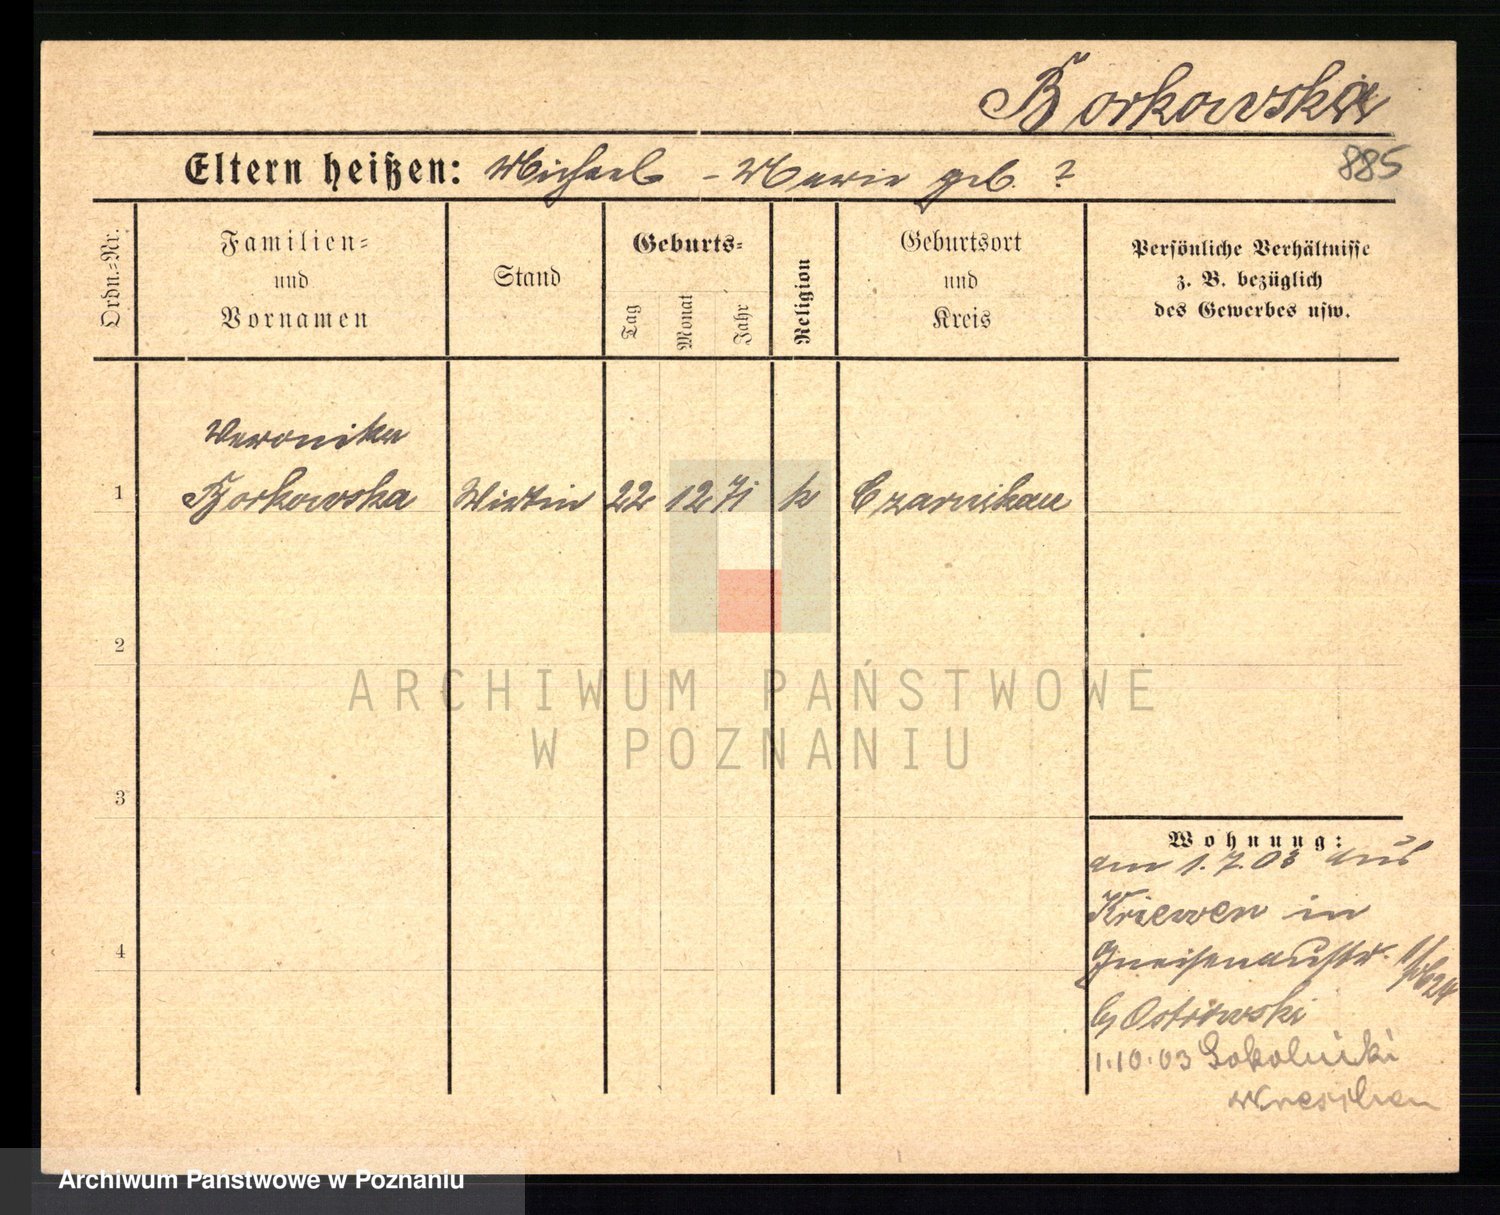 Borkowska
Eltern heißen: Michael - Marie geb. ?
885
Ordn.=Nr.
Familien=
und
Vornamen
Stand
Geburts=
Tag
Monat
Jahr
Religion
Geburtsort
und
Kreis
Persönliche Verhältnisse
z. B. bezüglich
des Gewerbes usw.
Veronika
1 Borkowska Wirtin 22 12 71 k Czarnikau
2
3
4
Wohnung:
am 1.7.03 aus
Kriewen in
Gneisenaustr.
by Ostrowski
1.10.03 Sokolnicki
Wreschen
ARCHIWUM PAŃSTWOWE
W POZNANIU
Archiwum Państwowe w Poznaniu